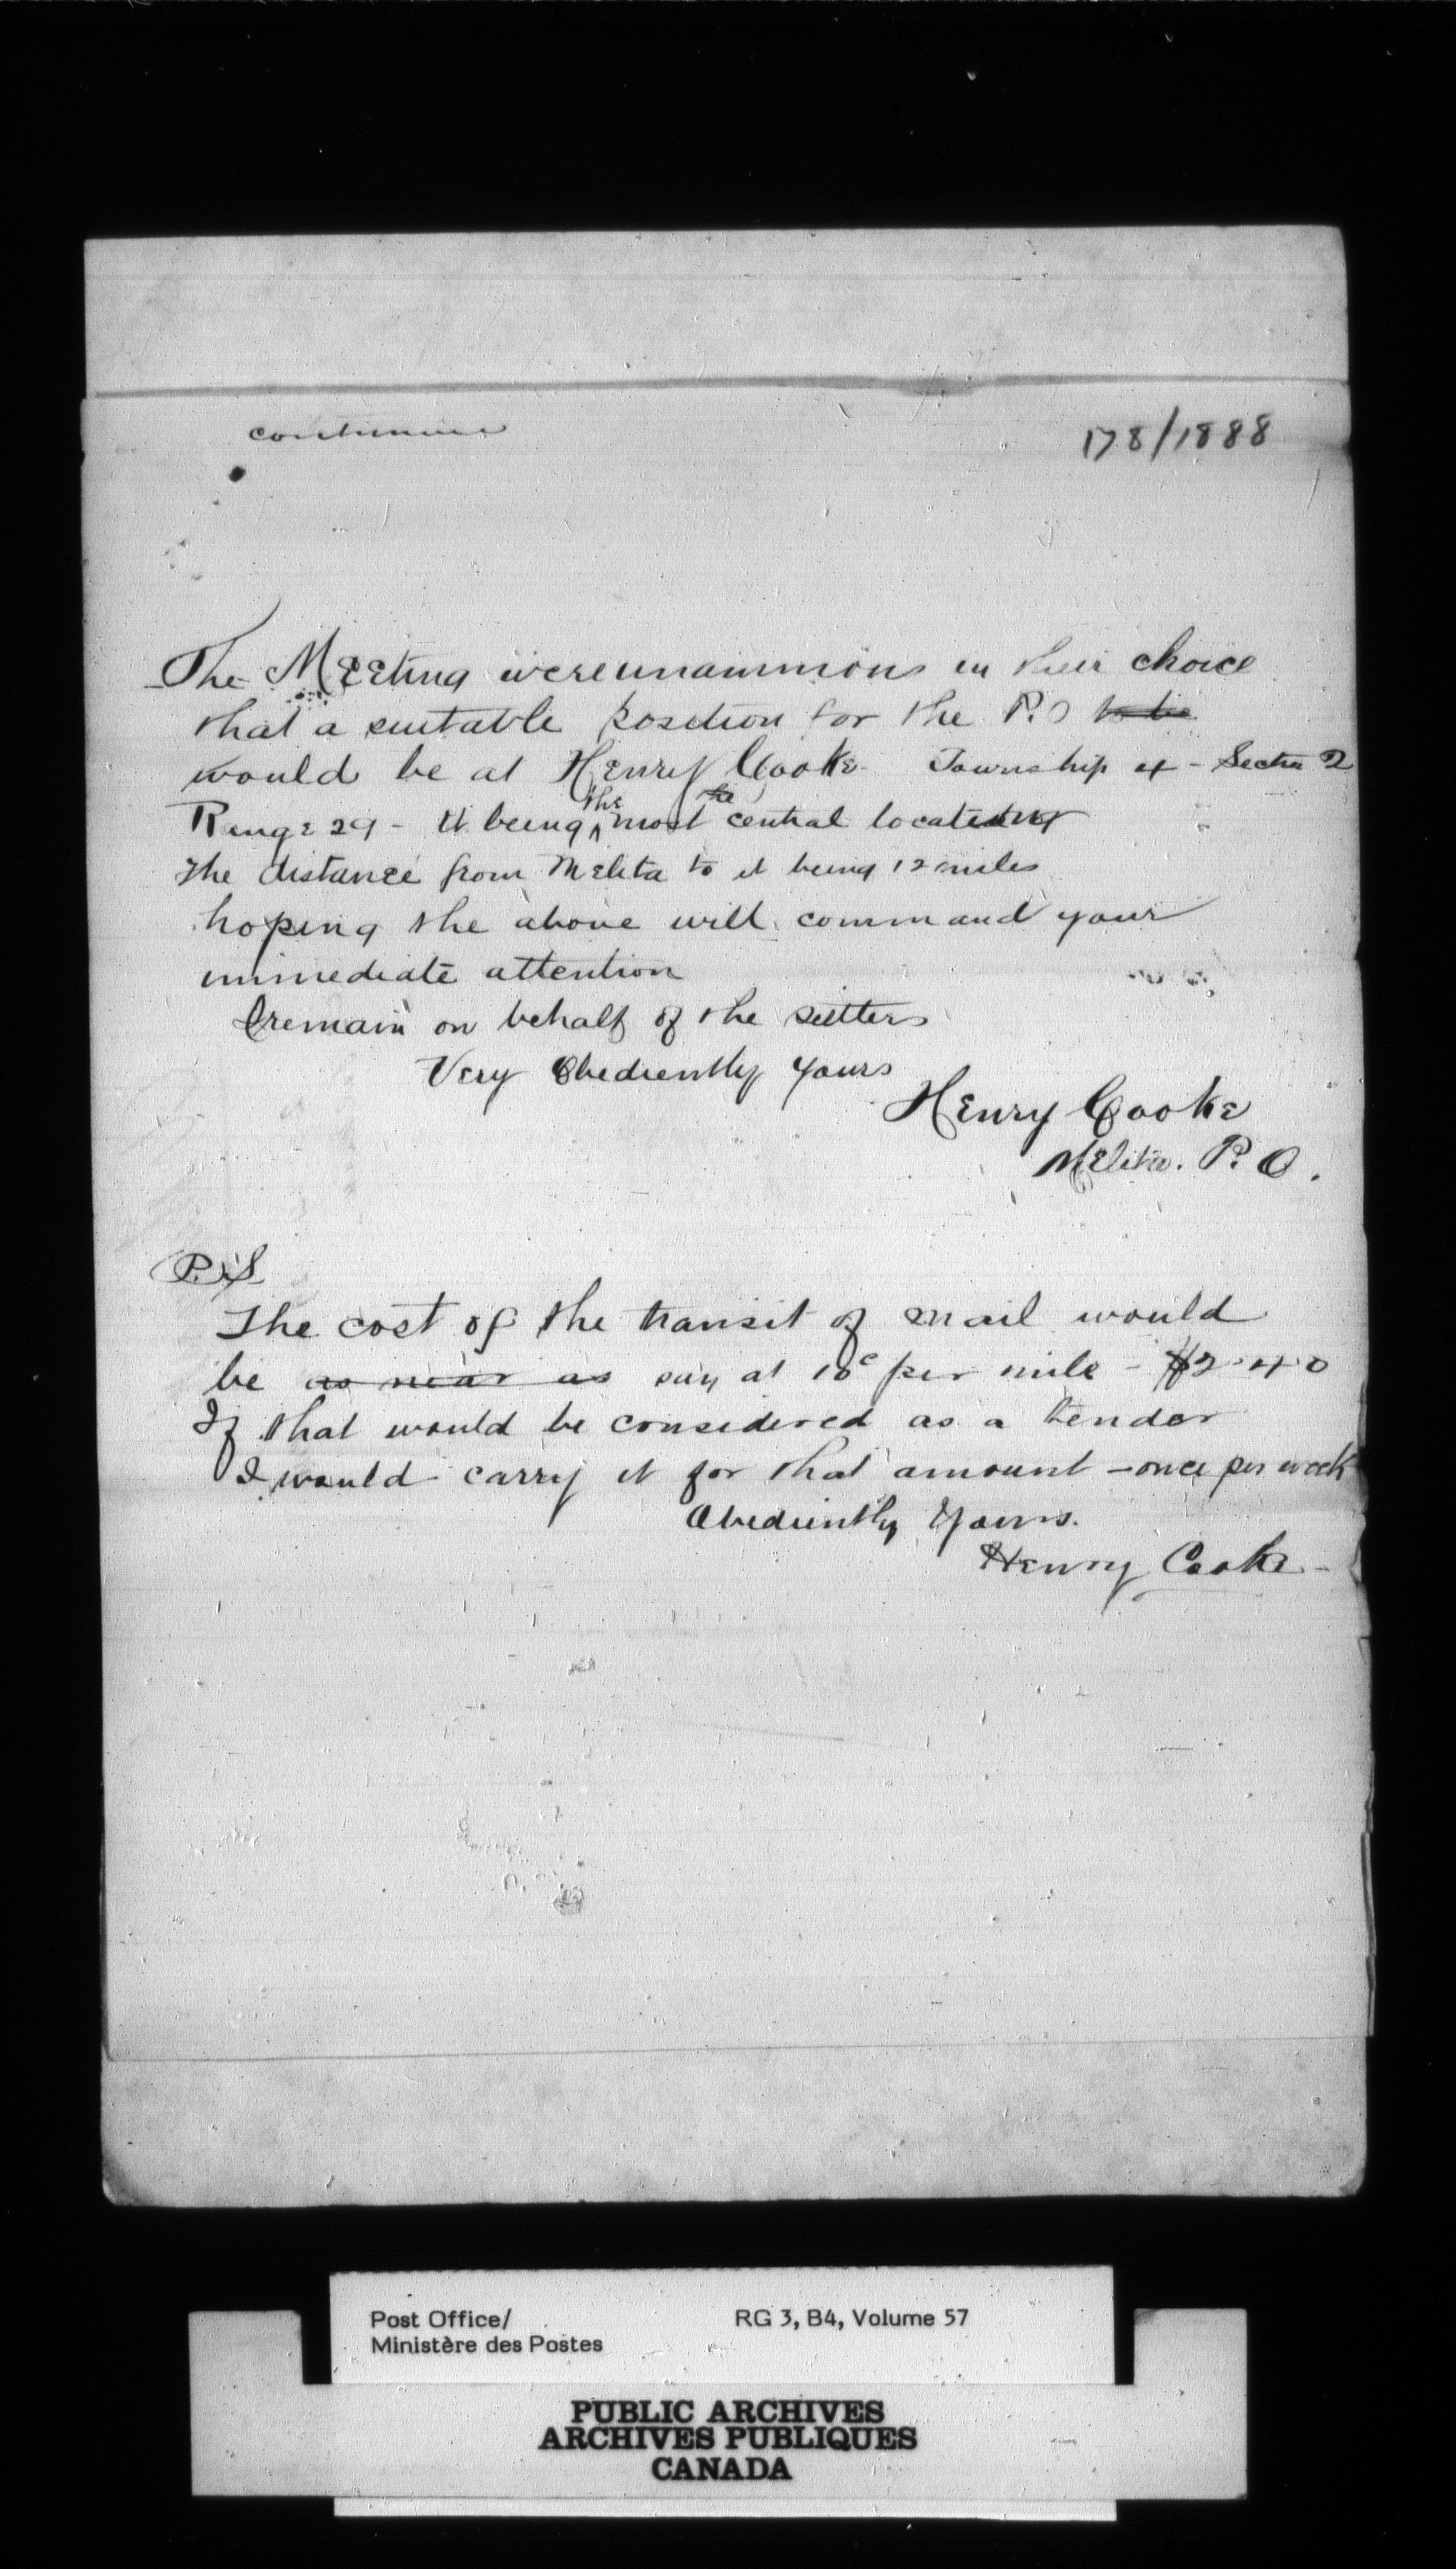 continued
178/1888
The Meeting were unanimous in their choice
that a suitable position for the P.O to be
would be at Henry Cooke Township 4 - Section 2
Range 29 - It being the most central located
the distance from Melita to it being 12 miles
hoping the above will command your
immediate attention
I remain on behalf of the settlers
Very Obediently Yours
Henry Cooke
Melita. P. O.
P.S
The cost of the transit of mail would
be as near as say at 10c per mile - $2.40
If that would be considered as a tender
I would carry it for that amount - once per week
Obediently Yours.
Henry Cooke -
Post Office/
Ministère des Postes
RG 3, B4, Volume 57
PUBLIC ARCHIVES
ARCHIVES PUBLIQUES
CANADA